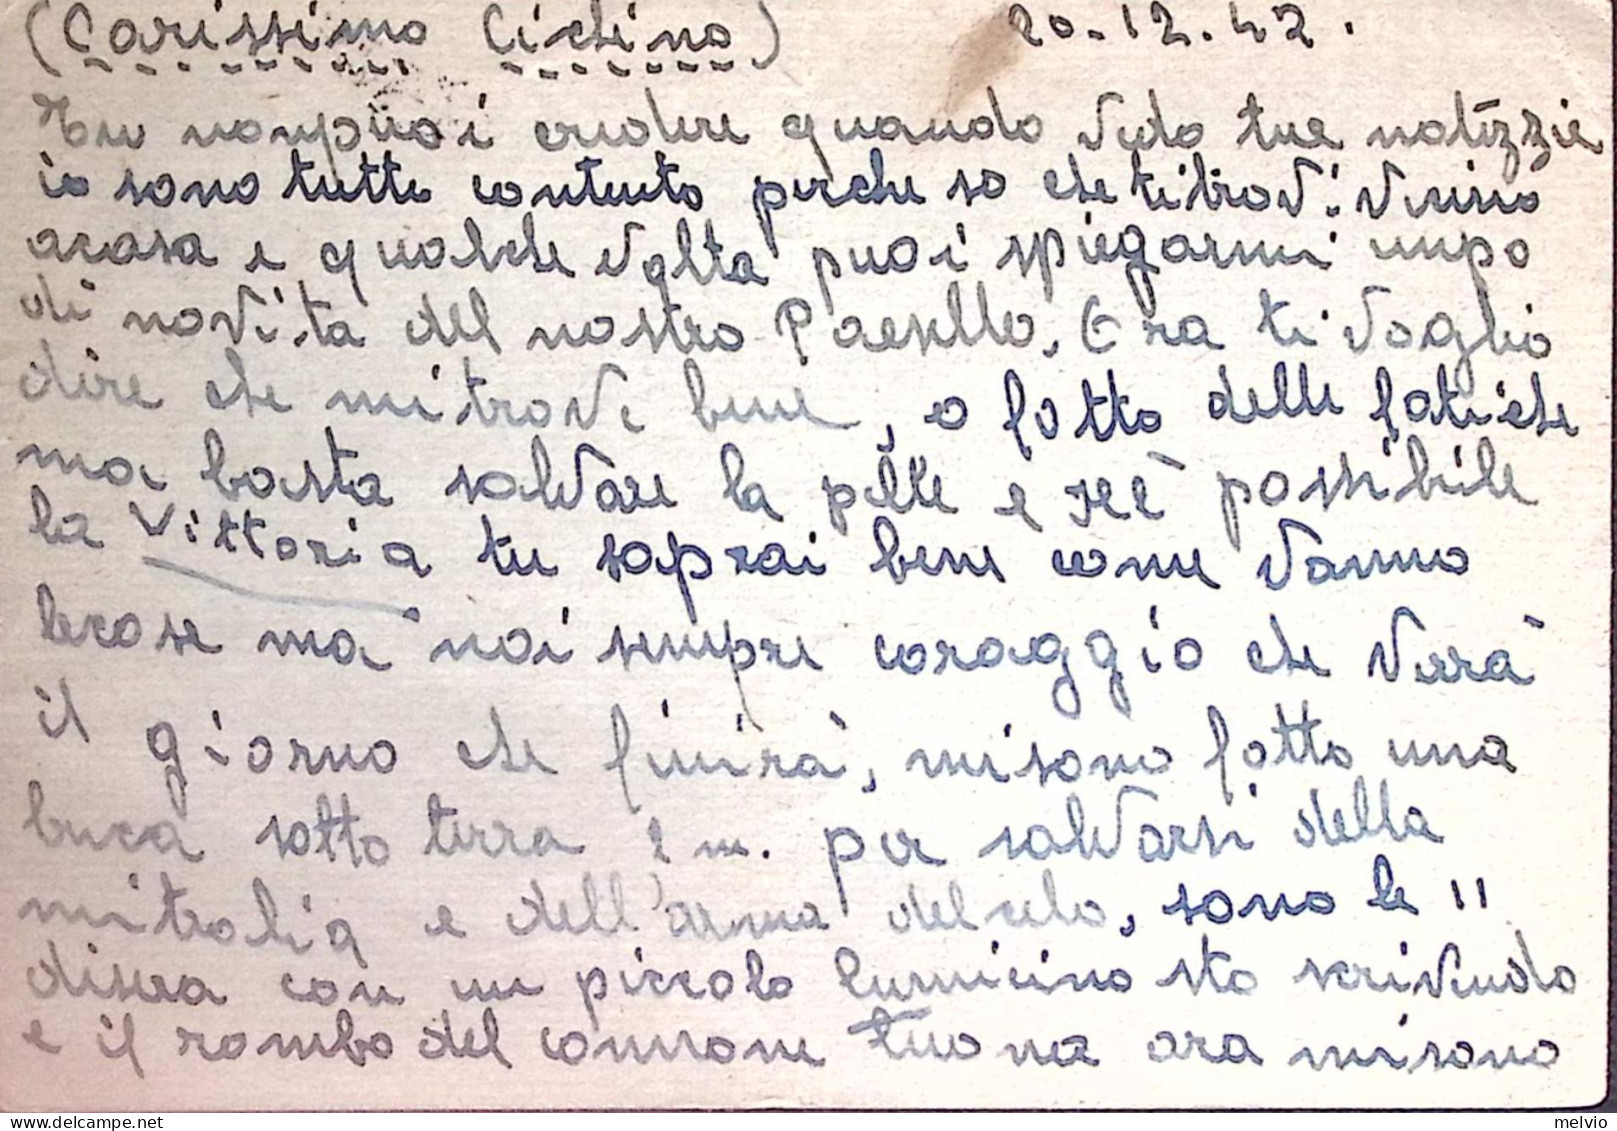 (Carissimo Cichino) 20-12-42.
Tu nonpuoi credere quando vedo tue notizzie
io sono tutto contento perche so che titrovi vicino
acasa e qualche volta puoi spiegarmi unpo
di novita del nostro Paesello, Ora ti voglio
dire che mi trovi bene, o fatto delle fatiche
ma basta salvare la pelle e se è possibile
la Vittoria tu saprai bene come vanno
lecose ma noi sempre coraggio che verrà
il giorno che finirà, misono fatto una
buca sotto terra 2 m. per salvarsi della
mitralia e dell'arma del celo, sono le 11
disera con un piccolo lumicino sto scrivendo
e il rombo del cannone tuona ora misono
melvio